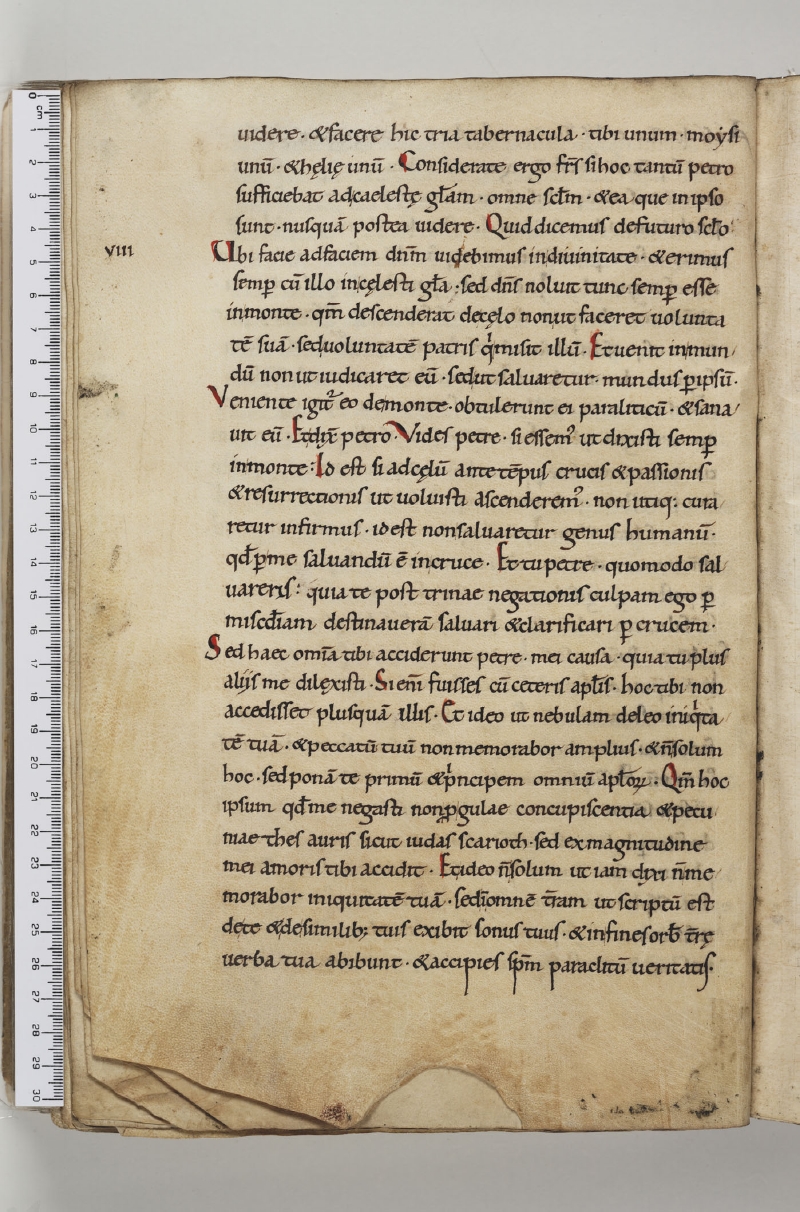 uidere · &facere hic tria tabernacula · tibi unum · moysi
unū · &hęlię unū · Considerate ergo fr̄s si hoc tantū petro
sufficiebat adcaelestę gl̄am · omne scl̄m · &ea que in ipso
sunt · nusquā postea uidere · Quid dicemus defuturo scl̄o
VIII
Ubi facie adfaciem dn̄m uidebimus indiuinitate · &erimus
semp̄ cū illo incęlesti gl̄a · sed dn̄s noluit tunc semp̄ esse
inmonte · qm̄ descenderat decęlo non ut faceret uolunta
tē suā · sed uoluntatē patris q̍ misit illū · Et uenit in mun
dū non ut iudicaret eū · sed ut saluaretur · mundus p̱ ipsū ·
Veniente igit̄ eo demonte · obtulerunt ei paraliticū · &sana
uit eū · Et dix̄ petro · Vides petre · si essem᾽ ut dixisti semp̄
inmonte : Id est si adcęlū ante tēpus crucis &passionis
&resurrectionis ut uoluisti ascenderem᾽ · non utiq; cura
retur infirmus · id est non saluaretur genus humanū ·
qd̄ p̱ me saluandū ē incruce · Et tu petre · quomodo sal
uareris : quia te post trinae negationis culpam ego p̱
miscd̄iam destinauerā saluari &clarificari p̱ crucem ·
Sed haec om̄ia tibi acciderunt petre · mei causa · quia tu plus
aliis me dilexisti · Si eni̅ fuisses cū ceteris apl̄is · hoc tibi non
accedisset plusquā illis · Et ideo ut nebulam deleo iniq̍ta
tē tuā · &peccatū tuū non memorabor amplius · &n̄ solum
hoc · sed ponā te primū &p̍ncipem omniū apl̄oꝝ · Qm̄ hoc
ipsum qd̄ me negasti non ꝓ gulae concupiscentia &pecu
niae thesauris sicut iudas scarioth · sed ex magnitudine
mei amoris tibi accidit · Et ideo n̄ solum ut iam dixi n̄ me
morabor iniquitatē tuā · sed in omnē t̄ram ut scriptū est
de te &desimilib; tuis exibit sonus tuus · &infines orb̄ t̄rę
uerba tua abibunt · &accipies sp̄m paraclitū ueritatis ·